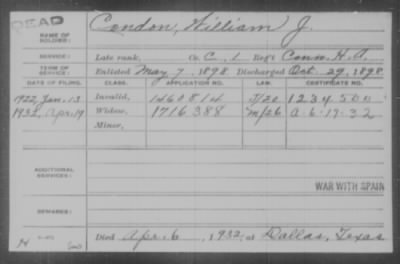 DEAD
NAME OF SOLDIER: Condon, William J.
SERVICE: Late rank, Co. C, 1 Reg't Conn. H. A.
TERM OF SERVICE: Enlisted May 7, 1898 Discharged Oct. 29, 1898
DATE OF FILING. CLASS. APPLICATION NO. LAW. CERTIFICATE NO.
1922, Jan. 13 Invalid, 1460814 J/20 1234500
1932, Apr. 19 Widow, 1716388 M/26 A-6-17-32
Minor,
ADDITIONAL SERVICES:
WAR WITH SPAIN
REMARKS:
Died Apr. 6, 1932, at Dallas, Texas